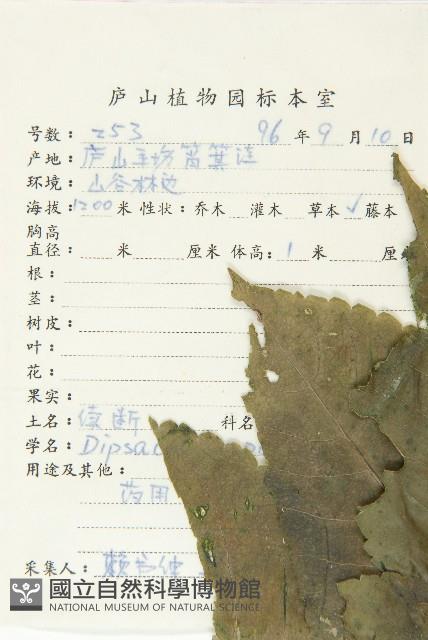 庐山植物园标本室
号数：253 96年9月10日
产地：庐山
环境：山谷林边
海拔：1200米 性状：乔木 灌木 草本√藤本
胸高
直径： 米 厘米 体高：1米 厘
根：
茎：
树皮：
叶：
花：
果实：
土名：续断 科名
学名：Dipsac
用途及其他：
药用
采集人：赖书绅
國立自然科學博物館
NATIONAL MUSEUM OF NATURAL SCIENCE